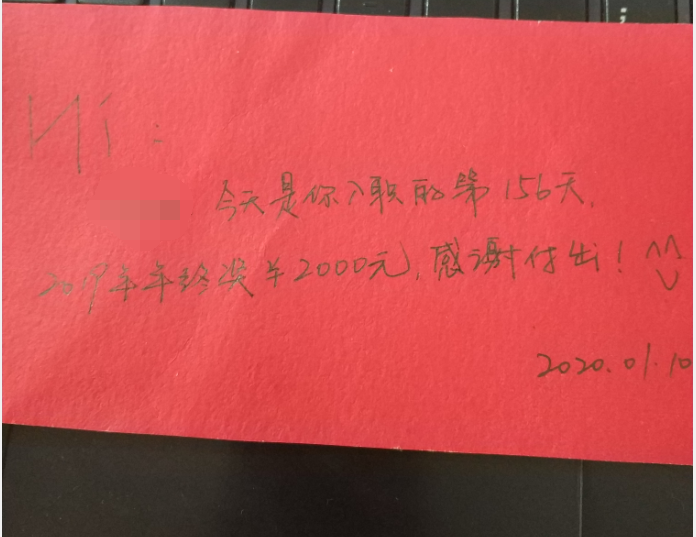 Hi:
今天是你入职的第156天,
2019年年终奖￥2000元,感谢付出! ^^
2020.01.10